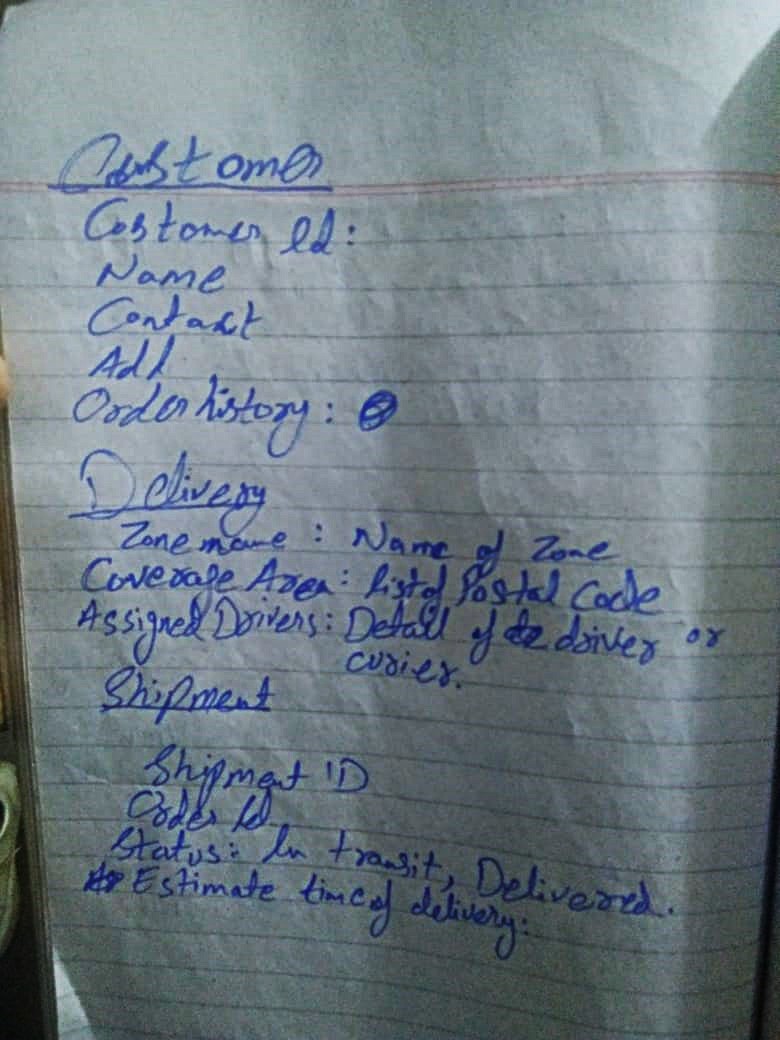 Customer
Customer Id:
Name
Contact
Add
Order history:
Delivery
Zone name : Name of Zone
Coverage Area: list of Postal Code
Assigned Drivers: Detail of driver or
curier.
Shipment
Shipment ID
Order Id
Status: In transit, Delivered.
Estimate time of delivery: